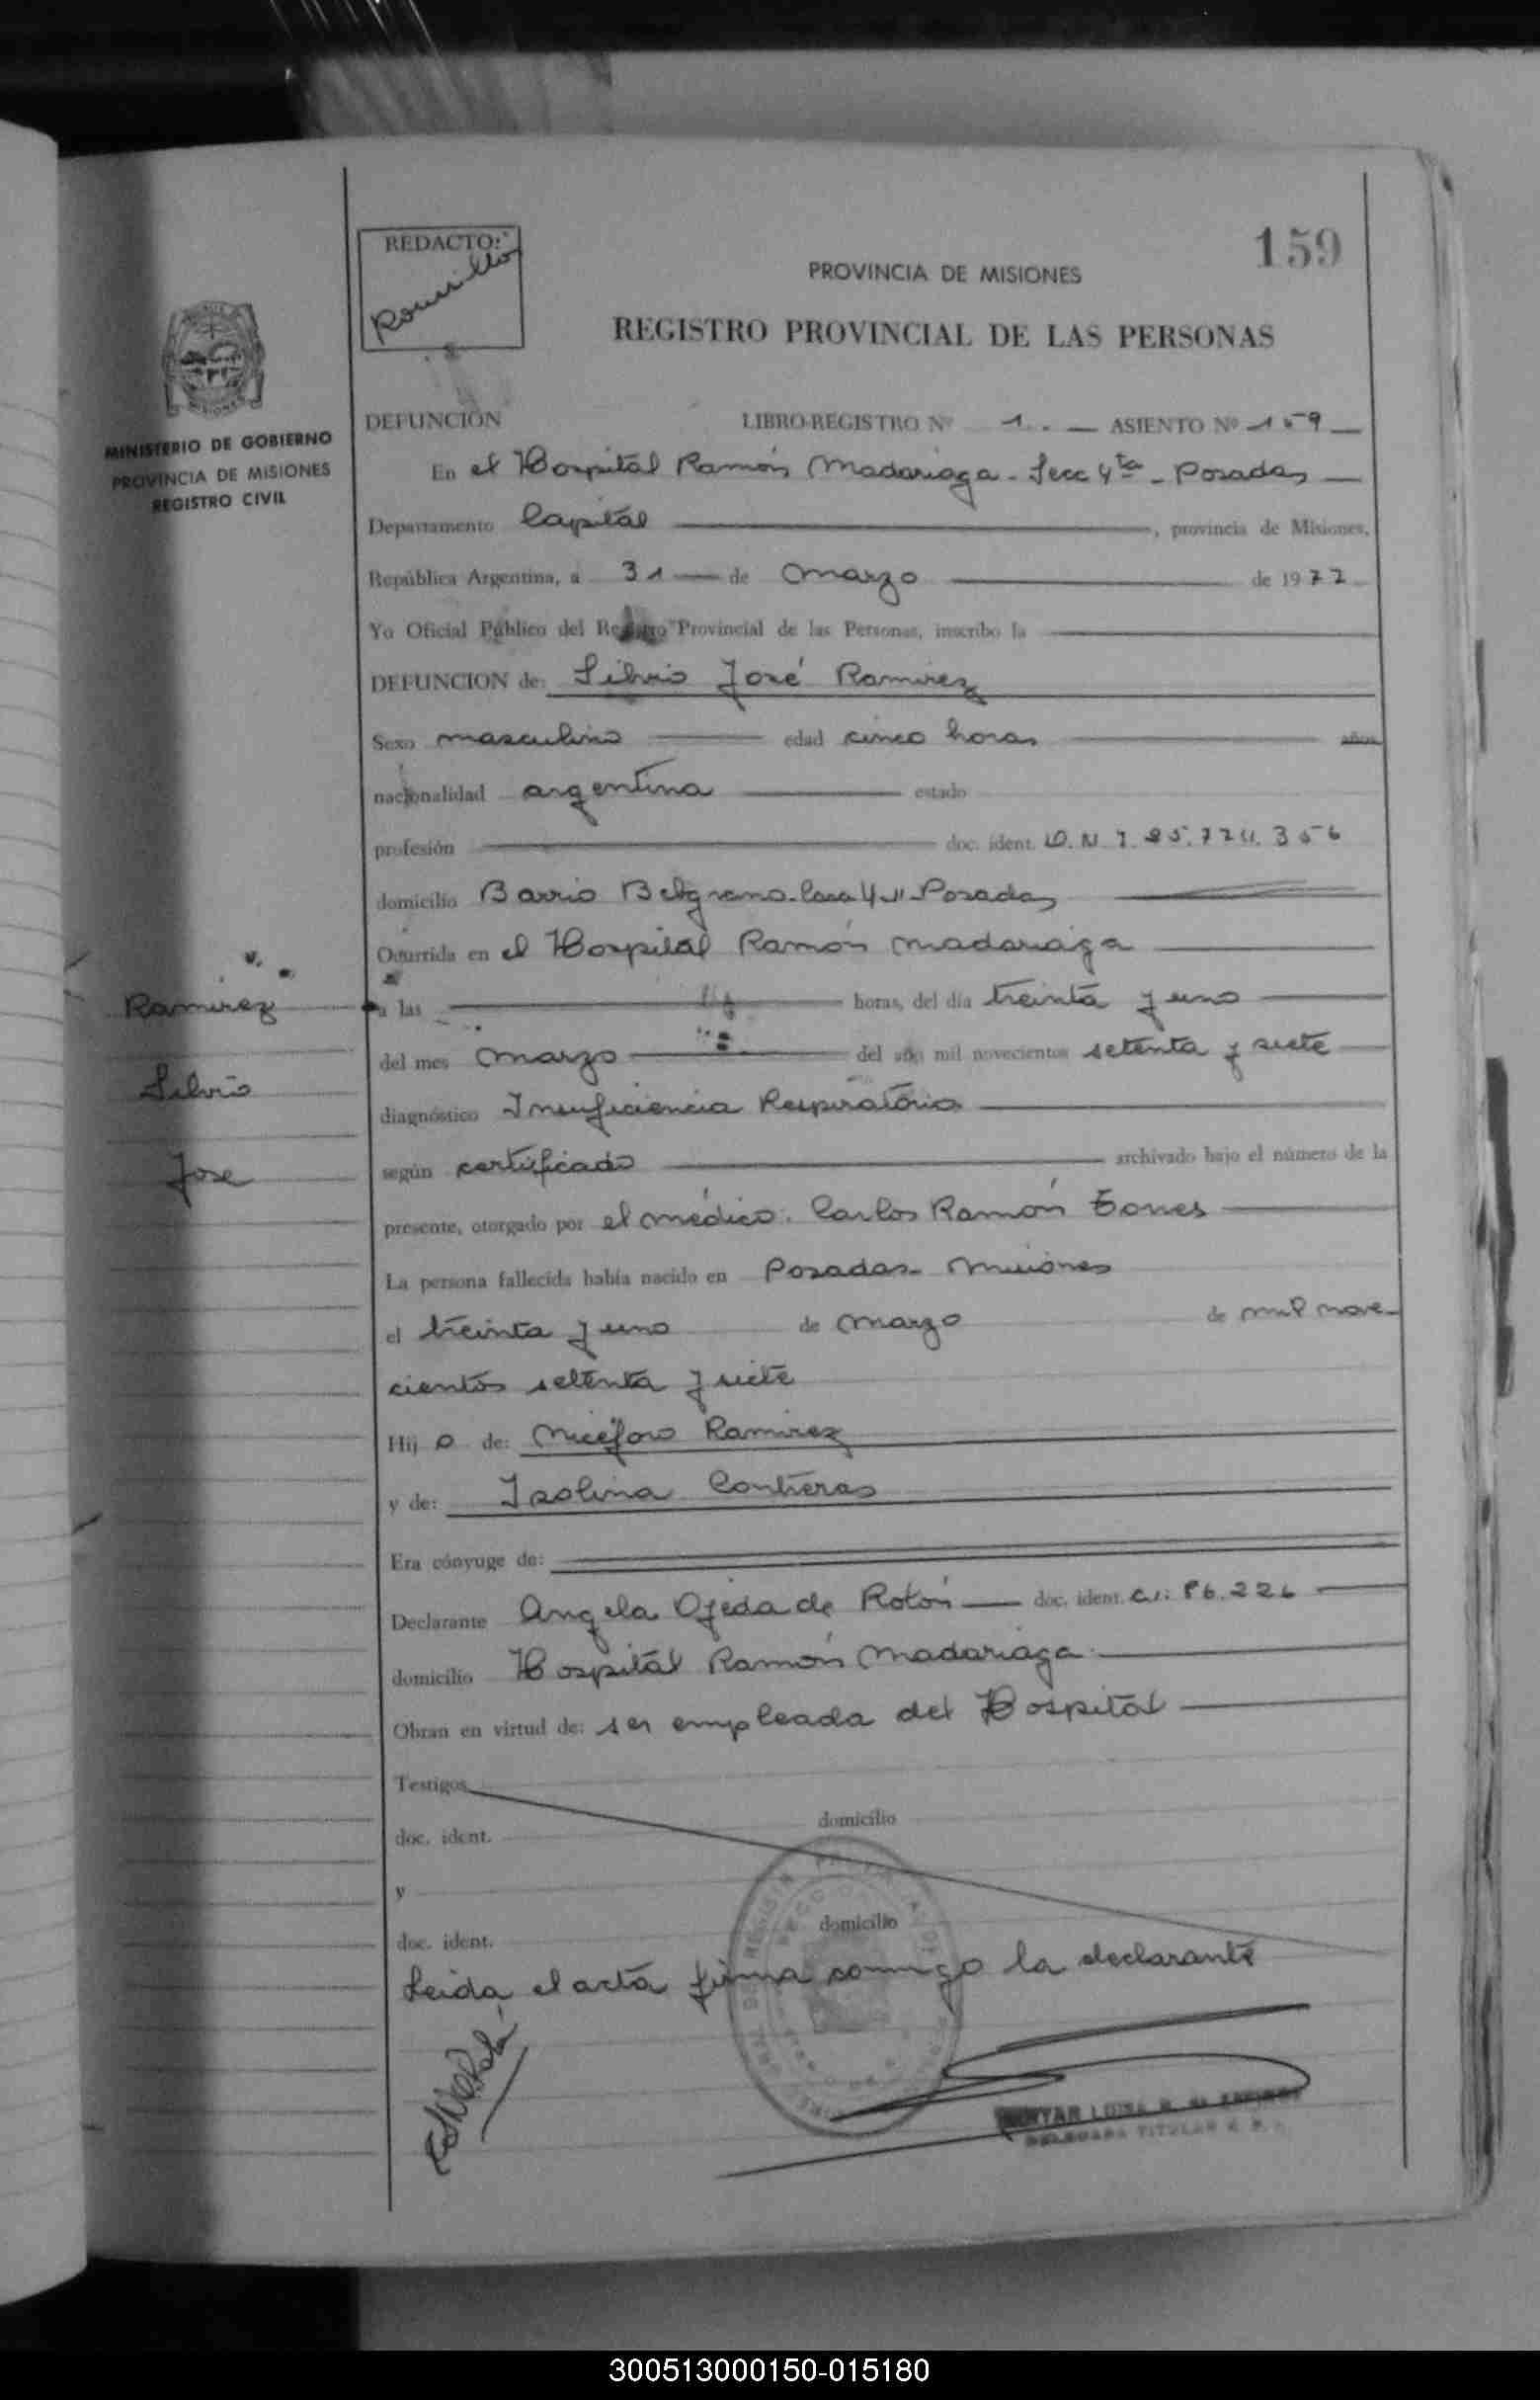 159
REDACTO:
PROVINCIA DE MISIONES
REGISTRO PROVINCIAL DE LAS PERSONAS
MINISTERIO DE GOBIERNO
PROVINCIA DE MISIONES
REGISTRO CIVIL
DEFUNCIÓN LIBRO-REGISTRO Nº 1. ASIENTO Nº 159
En el Hospital Ramón Madariaga - Secc 4ta - Posadas
Departamento Capital, provincia de Misiones,
República Argentina, a 31 de Marzo de 1977
Yo Oficial Público del Registro Provincial de las Personas, inscribo la
DEFUNCION de: Silvio José Ramirez
Sexo masculino edad cinco horas años
nacionalidad argentina estado
profesión doc. ident. D.N.I.
domicilio Barrio Belgrano. Casa Posadas
Ocurrida en el Hospital Ramón Madariaga
a las horas, del día treinta y uno
del mes Marzo del año mil novecientos setenta y siete
diagnóstico Insuficiencia Respiratoria
según certificado archivado bajo el número de la
presente, otorgado por el médico. Carlos Ramón Torres
La persona fallecida había nacido en Posadas - Misiones
el treinta y uno de Marzo de mil nove-
cientos setenta y siete
Hij o de: Niceforo Ramirez
y de: Isolina Contreras
Era cónyuge de:
Declarante Angela Ojeda de Rotón doc. ident. C.I: 86.226
domicilio Hospital Ramón Madariaga
Obran en virtud de: ser empleada del Hospital
Testigos
doc. ident. domicilio
y
doc. ident. domicilio
Leida el acta firma conmigo la declarante
Ramirez
Silvio
Jose
300513000150-015180